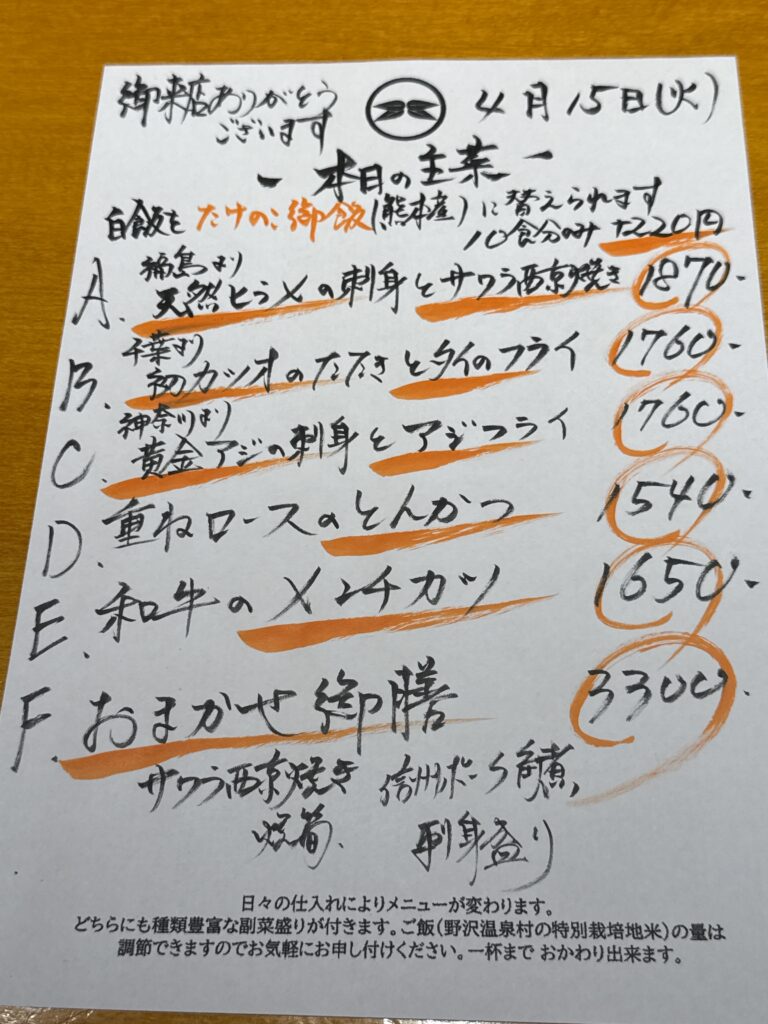 御来店ありがとう
ございます
4月15日(火)
- 本日の主菜 -
白飯を たけのこ御飯(熊本産)に替えられます
10食分のみ +220円
福島より
A. 天然ヒラメの刺身とサワラ西京焼き 1870-
千葉より
B. 初カツオのたたきとタイのフライ 1760-
神奈川より
C. 黄金アジの刺身とアジフライ 1760-
D. 重ねロースのとんかつ 1540-
E. 和牛のメンチカツ 1650-
F. おまかせ御膳 3300.
サワラ西京焼き 信州ポーク角煮、
焼筍、 刺身盛り
日々の仕入れによりメニューが変わります。
どちらにも種類豊富な副菜盛りが付きます。ご飯(野沢温泉村の特別栽培地米)の量は
調節できますのでお気軽にお申し付けください。一杯まで おかわり出来ます。